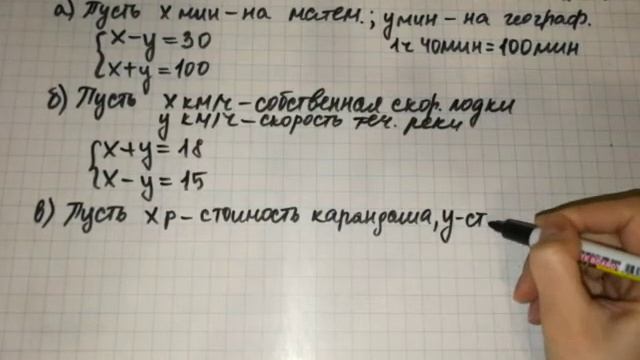 а) Пусть x мин – на матем.; y мин – на географ.
x – y = 30
1ч 40мин = 100мин
x + y = 100
б) Пусть x км/ч – собственная скор. лодки
y км/ч – скорость теч. реки
x + y = 18
x – y = 15
в) Пусть x р – стоимость карандаша, y – ст